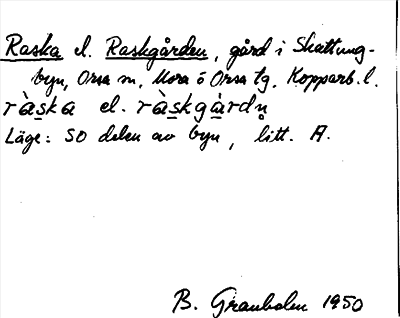 Raska el. Raskgården, gård i Skattung-
byn, Orsa sn, Mora o Orsa tg. Kopparb. l.
ràska el. ràskgàrdn̥
Läge: SO delen av byn, litt. A.
B. Granholen 1950